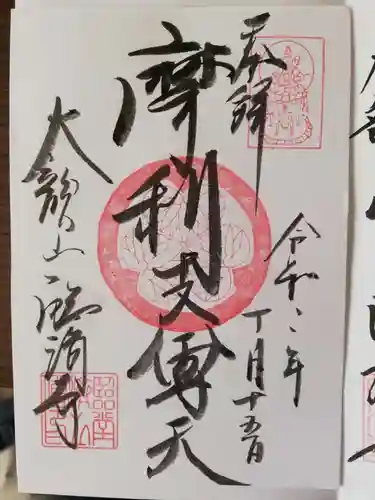 奉拝
令和二年
月十五日
摩利支尊天
大龍山 臨済寺